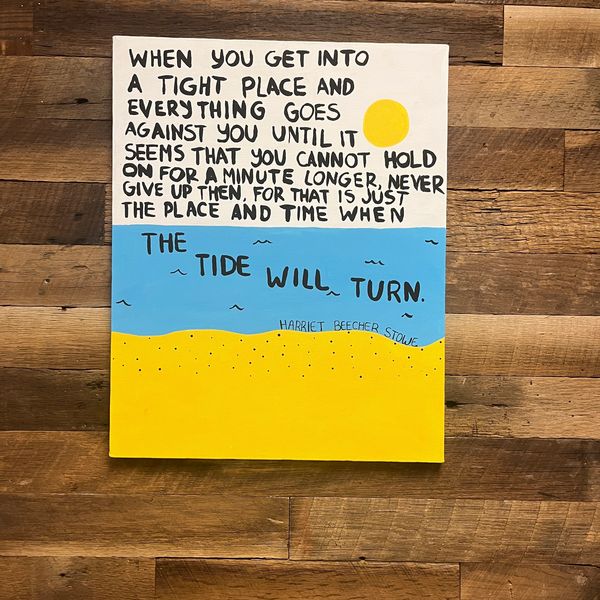 WHEN YOU GET INTO
A TIGHT PLACE AND
EVERYTHING GOES
AGAINST YOU UNTIL IT
SEEMS THAT YOU CANNOT HOLD
ON FOR A MINUTE LONGER, NEVER
GIVE UP THEN, FOR THAT IS JUST
THE PLACE AND TIME WHEN
THE TIDE WILL TURN.
HARRIET BEECHER STOWE